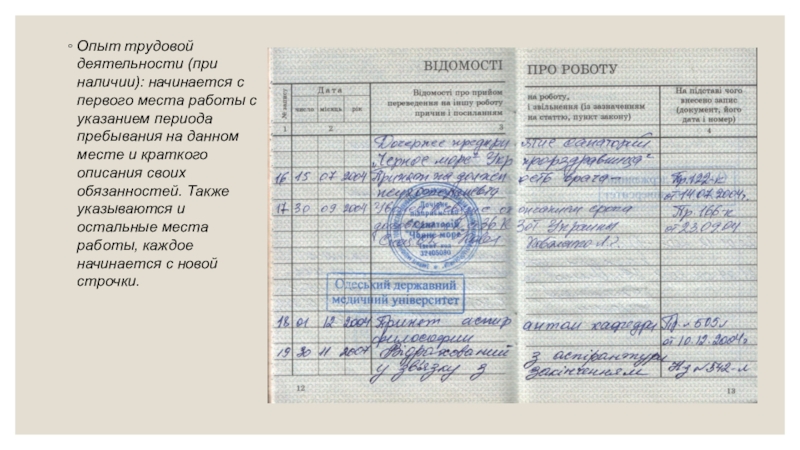 ◦ Опыт трудовой
деятельности (при
наличии): начинается с
первого места работы с
указанием периода
пребывания на данном
месте и краткого
описания своих
обязанностей. Также
указываются и
остальные места
работы, каждое
начинается с новой
строчки.
ВІДОМОСТІ
ПРО РОБОТУ
№ запису
Дата
число місяць рік
Відомості про прийом
переведення на іншу роботу
причин і посиланням
на роботу,
і звільнення (із зазначенням
на статтю, пункт закону)
На підставі чого
внесено запис
(документ, його
дата і номер)
1 2 3 4
Дочернее предпри ятие санаторий
„Черное море" Укр профздравница"
16 15 07 2004 Принят на должн ость врача- Пр.122-к
от 14.07.2004г.
17 30 09 2004 срока Пр 166-к
Украины от 23.09.04
Санаторій
Чорне море
Одеський державний
медичний університет
18 01 12 2004 Принят аспир антом кафедры Пр. №505л
философии от 10.12.2004г
19 30 11 2007 Відрахований з аспірантури
у звязку з закінченням Нз №542-л
12
13